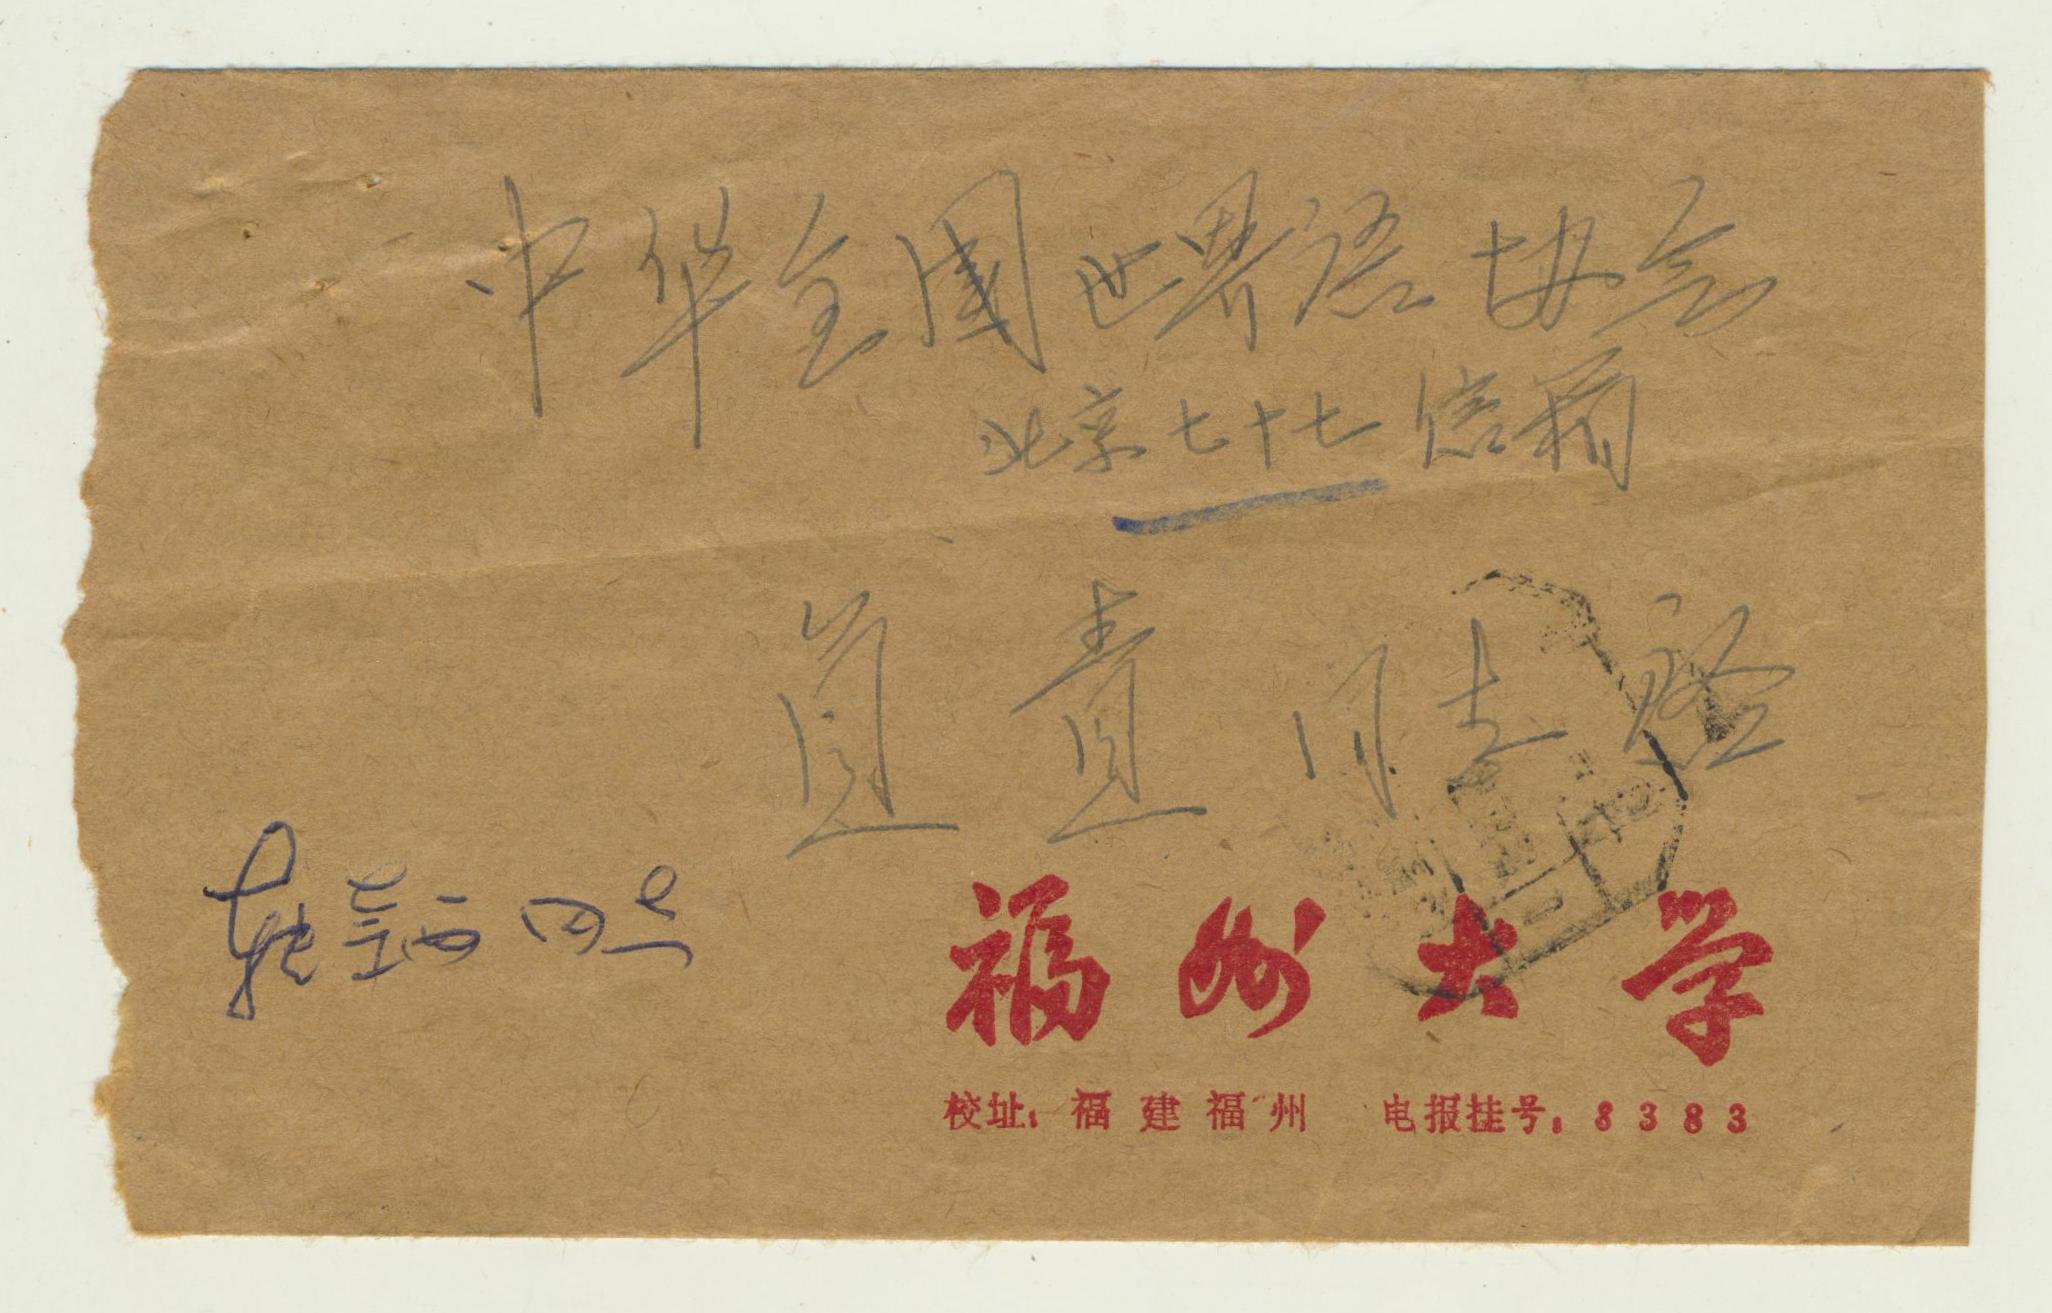 中华全国世界语协会
北京七十七信箱
负责同志启
福州大学
校址：福建福州 电报挂号：8383